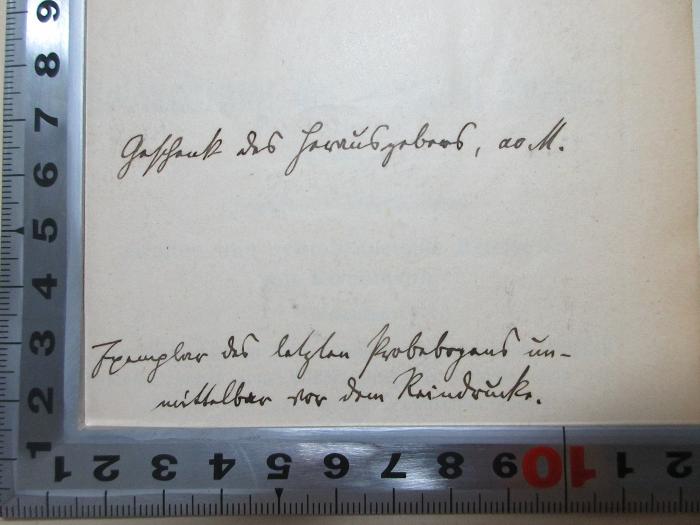 Geschenk des Herausgebers, ao M.
Exemplar des letzten Probebogens un-
mittelbar vor dem Reindrucke.
9
8
7
6
5
4
3
2
1
1 2 3 4 5 6 7 8 9 10 1 2